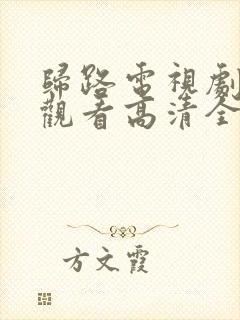 歸路電視劇
觀看高清全
方文霞